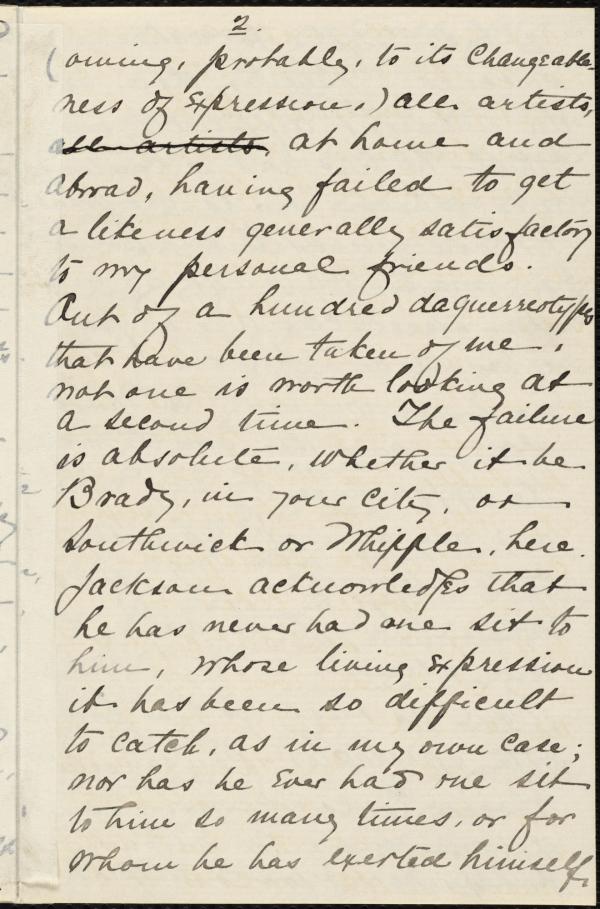 2.
(owing, probably, to its changeable-
ness of expression,) all artists,
all artists, at home and
abroad, having failed to get
a likeness generally satisfactory
to my personal friends.
Out of a hundred daguerreotypes
that have been taken of me,
not one is worth looking at
a second time. The failure
is absolute, whether it be
Brady, in your city, or
Southwick or Whipple, here.
Jackson acknowledges that
he has never had one sit to
him, whose living expression
it has been so difficult
to catch, as in my own case;
nor has he ever had one sit
to him so many times, or for
whom he has exerted himself,